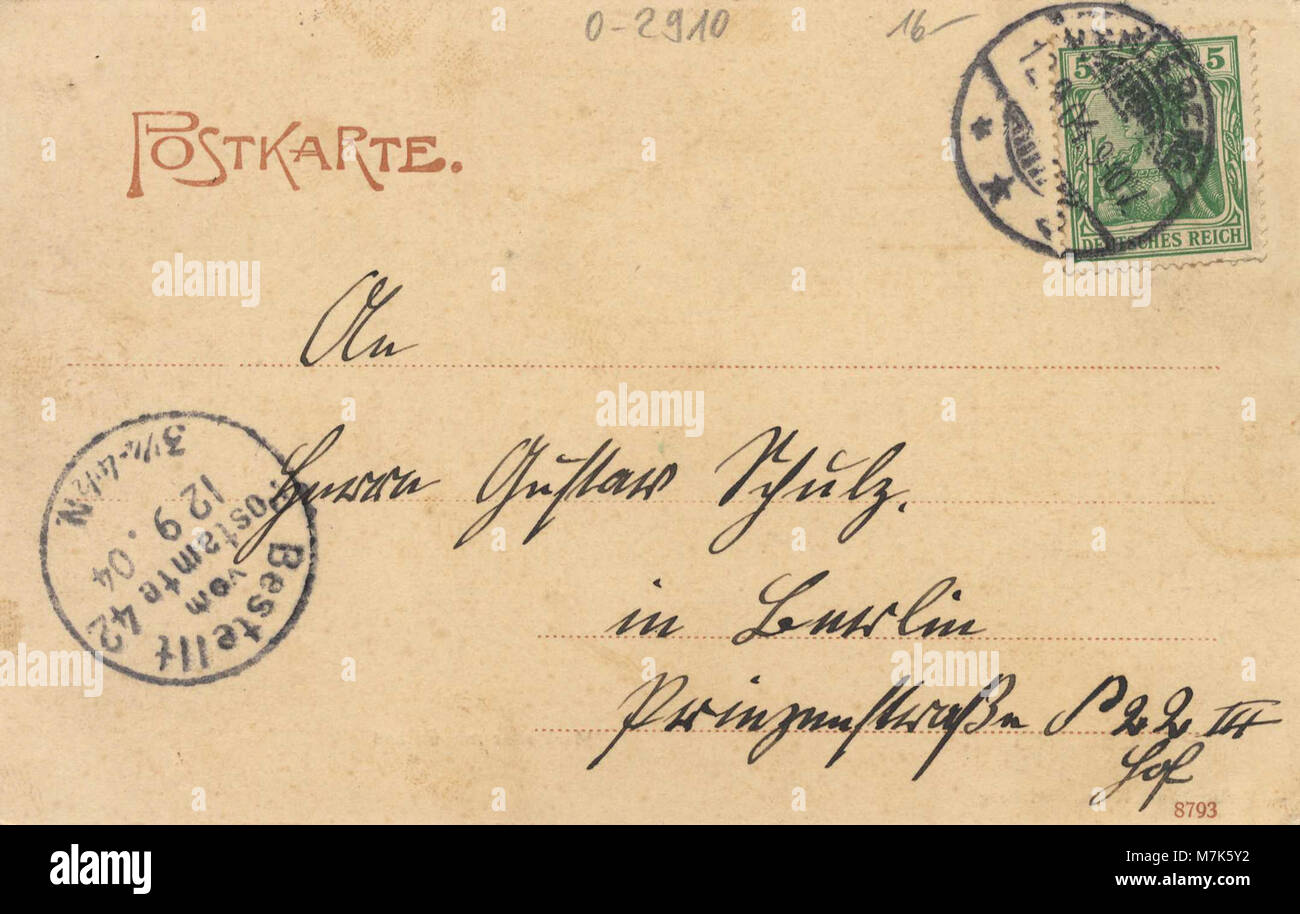 0-2910 16-
POSTKARTE.
5 5
DEUTSCHES REICH
An
Herrn Gustav Schulz.
in Berlin
Prinzenstraße 22 III
Hof
Bestellt
vom
Postamte 42
12 9. 04
3½-4½N.
8793
a alamy stock photo
alamy
Image ID: M7K5Y2
www.alamy.com